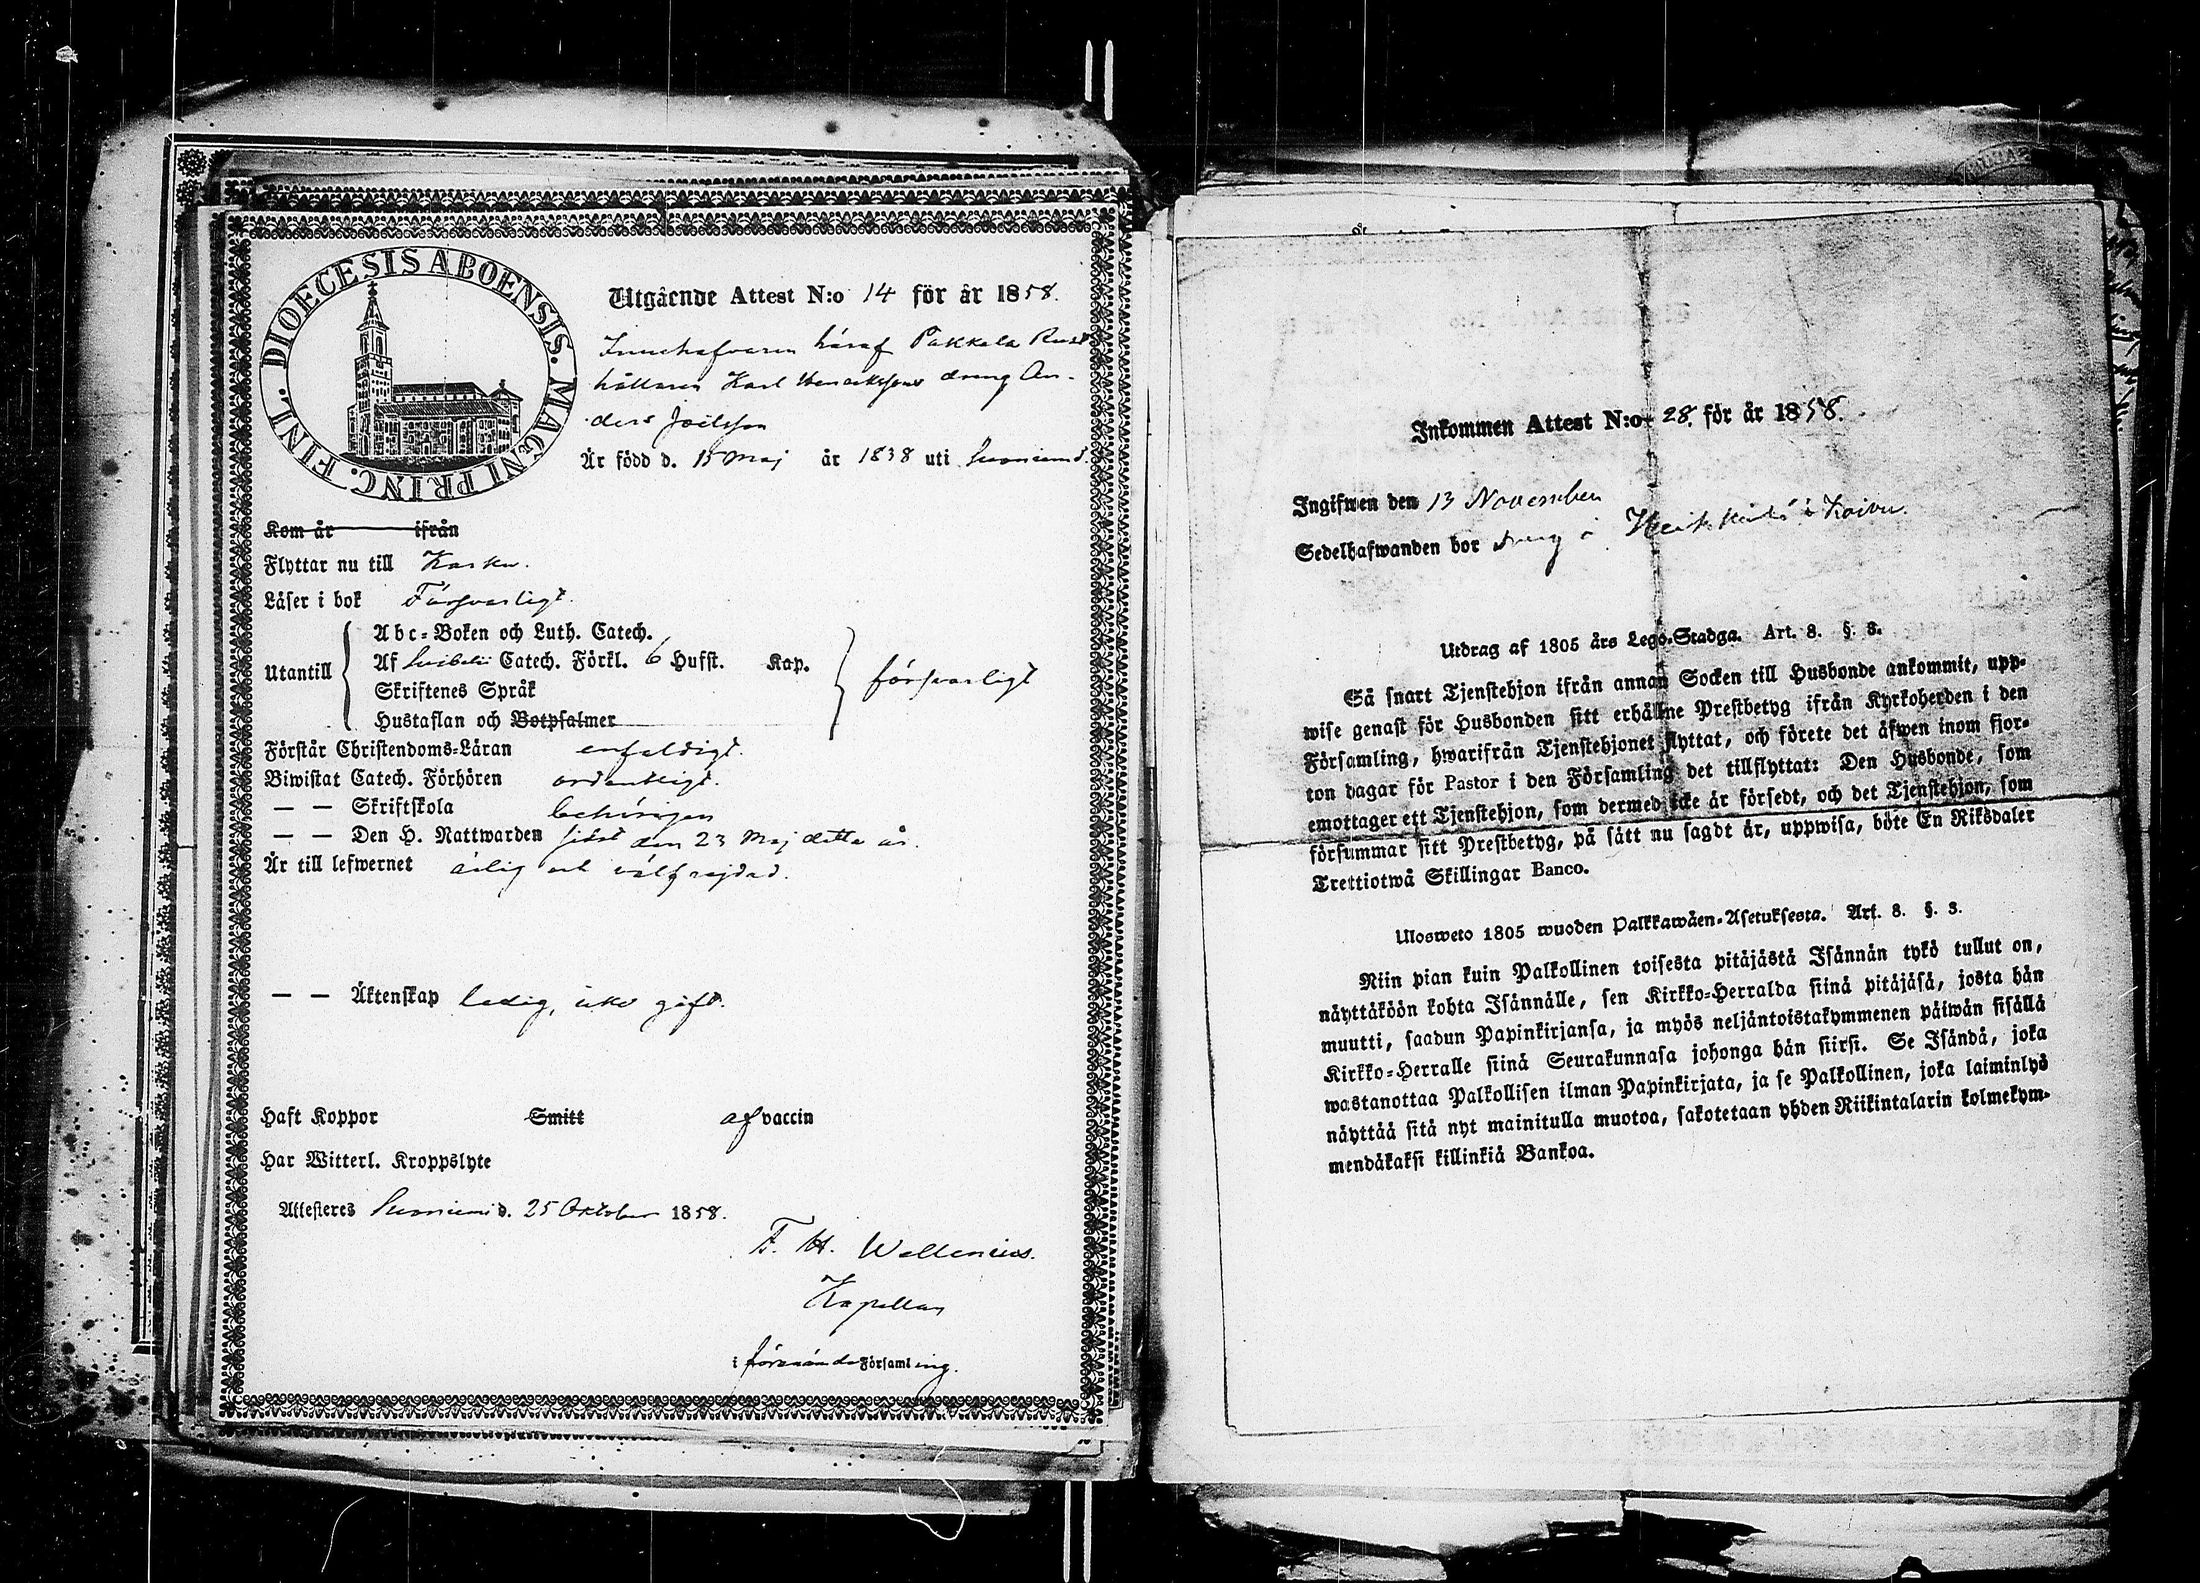 DIOECESIS ABOENSIS. MAGNI PRINC. FINL.
Utgående Attest N:o 14 för år 1858.
Innehafvaren häraf Pakkala Rust
hållaren Karl Henrikssons dreng An-
ders Joelsson
Är född d. 15 Maj år 1838 uti Suoniemi.
Kom år ifrån
Flyttar nu till Karku.
Läser i bok Försvarligt.
Utantill
Abc-Boken och Luth. Catech.
Af Svebelii Catech. Förkl. 6 Hufst. Kap.
Skriftenes Språk
Hustaflan och Botpsalmer
försvarligt
Förstår Christendoms-Läran enfaldigt.
Biwistat Catech. Förhören ordentligt.
— — Skriftskola behörigen
— — Den H. Nattwarden sidst den 23 Maj detta år.
Är till lefwernet ärlig och välfrejdad.
— — Äktenskap ledig, icke gift.
Haft Koppor Smitt af vaccin
Har Witterl. Kroppslyte
Attesteres Suoniemi d. 25 Oktober 1858.
F. H. Wallenius.
Kapellan
i förenämnde Församling.
Inkommen Attest N:o 28. för år 1858.
Ingifwen den 13 November
Sedelhafwanden bor dreng i Heikkilä i Koivu.
Utdrag af 1805 års Lego-Stadga. Art. 8. §. 3.
Så snart Tjenstehjon ifrån annan Socken till Husbonde ankommit, upp-
wise genast för Husbonden sitt erhållne Prestbetyg ifrån Kyrkoherden i den
Församling, hwarifrån Tjenstehjonet flyttat, och förete det äfwen inom fjor-
ton dagar för Pastor i den Församling det tillflyttat: Den Husbonde, som
emottager ett Tjenstehjon, som dermed icke är försedt, och det Tjenstehjon, som
försummar sitt Prestbetyg, på sätt nu sagdt är, uppwisa, böte En Riksdaler
Trettiotwå Skillingar Banco.
Ulosweto 1805 wuoden Palkkawäen-Asetuksesta. Art. 8. §. 3.
Niin pian kuin Palkollinen toisesta pitäjästä Isännän tykö tullut on,
näyttäköön kohta Isännälle, sen Kirkko-Herralda siinä pitäjäsä, josta hän
muutti, saadun Papinkirjansa, ja myös neljäntoistakymmenen päiwän sisällä
Kirkko-Herralle siinä Seurakunnasa johonga hän siirsi. Se Isändä, joka
wastanottaa Palkollisen ilman Papinkirjata, ja se Palkollinen, joka laiminlyö
näyttää sitä nyt mainitulla muotoa, sakotetaan yhden Riikintalarin kolmekym-
mendäkaksi killinkiä Bankoa.